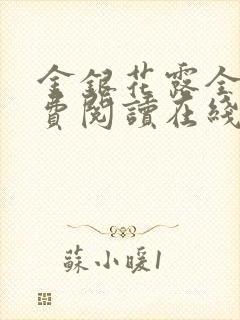 金銀花露全
費閱讀在綫
蘇小暖1